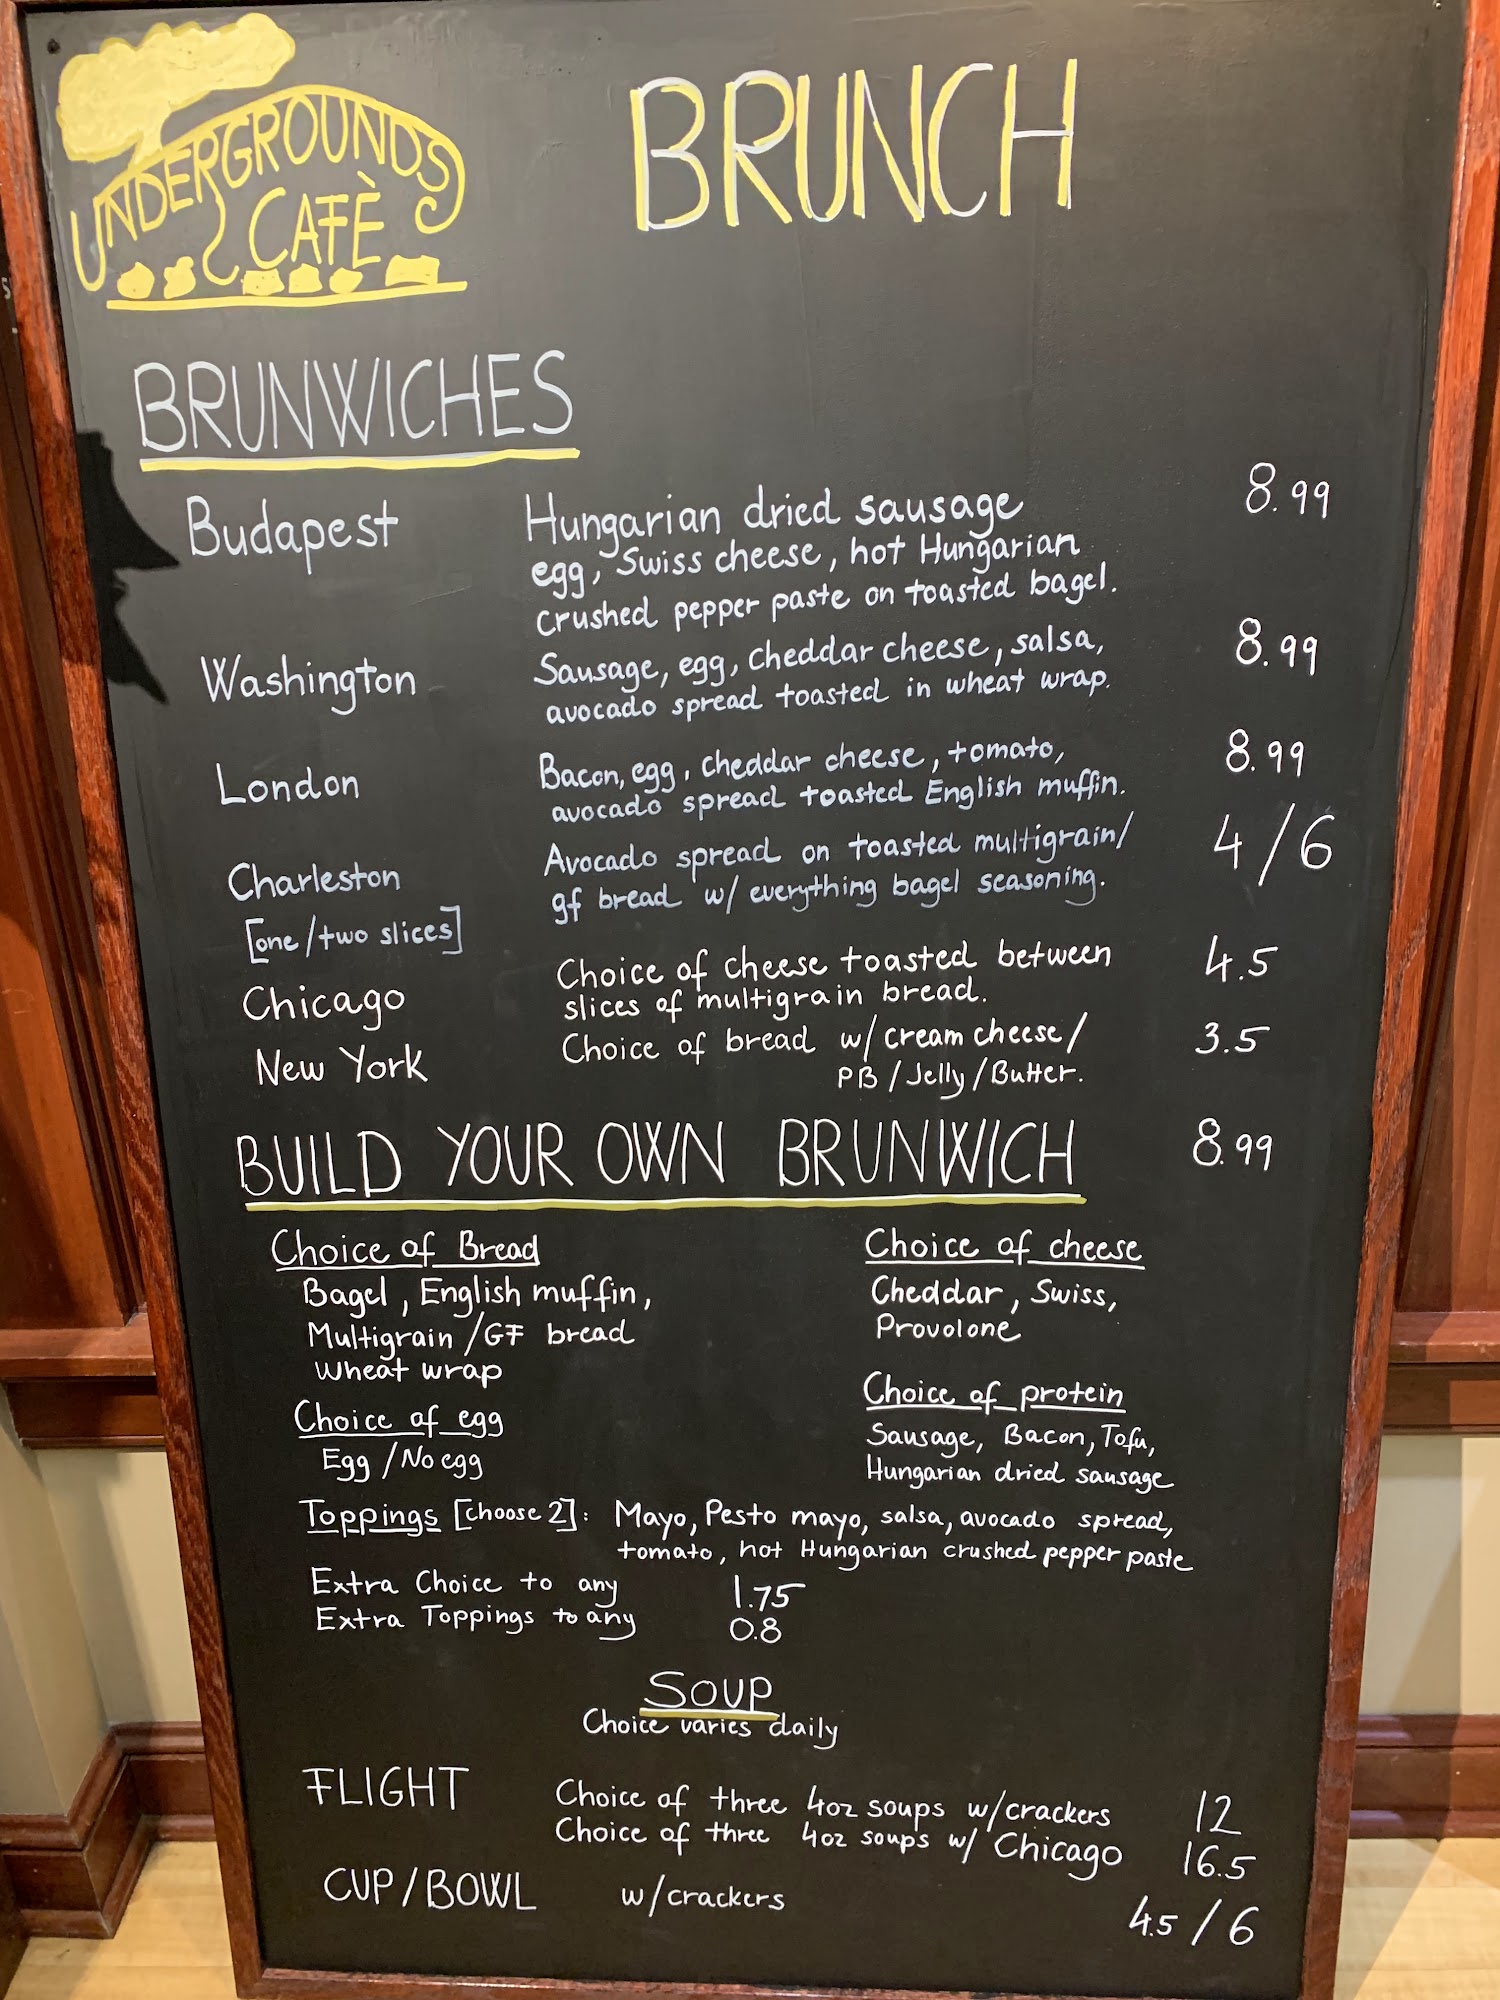 UNDERGROUNDS
CAFÈ
BRUNCH
BRUNWICHES
Budapest Hungarian dried sausage 8.99
egg, Swiss cheese, hot Hungarian
crushed pepper paste on toasted bagel.
Washington Sausage, egg, cheddar cheese, salsa, 8.99
avocado spread toasted in wheat wrap.
London Bacon, egg, cheddar cheese, tomato, 8.99
avocado spread toasted English muffin.
Charleston Avocado spread on toasted multigrain/ 4/6
[one/two slices] gf bread w/ everything bagel seasoning.
Chicago Choice of cheese toasted between 4.5
slices of multigrain bread.
New York Choice of bread w/ cream cheese/ 3.5
PB/Jelly/Butter.
BUILD YOUR OWN BRUNWICH 8.99
Choice of Bread
Bagel, English muffin,
Multigrain/GF bread
Wheat wrap
Choice of egg
Egg/No egg
Choice of cheese
Cheddar, Swiss,
Provolone
Choice of protein
Sausage, Bacon, Tofu,
Hungarian dried sausage
Toppings [choose 2]: Mayo, Pesto mayo, salsa, avocado spread,
tomato, hot Hungarian crushed pepper paste
Extra Choice to any 1.75
Extra Toppings to any 0.8
SOUP
Choice varies daily
FLIGHT Choice of three 4oz soups w/crackers 12
Choice of three 4oz soups w/ Chicago 16.5
CUP/BOWL w/crackers 4.5/6